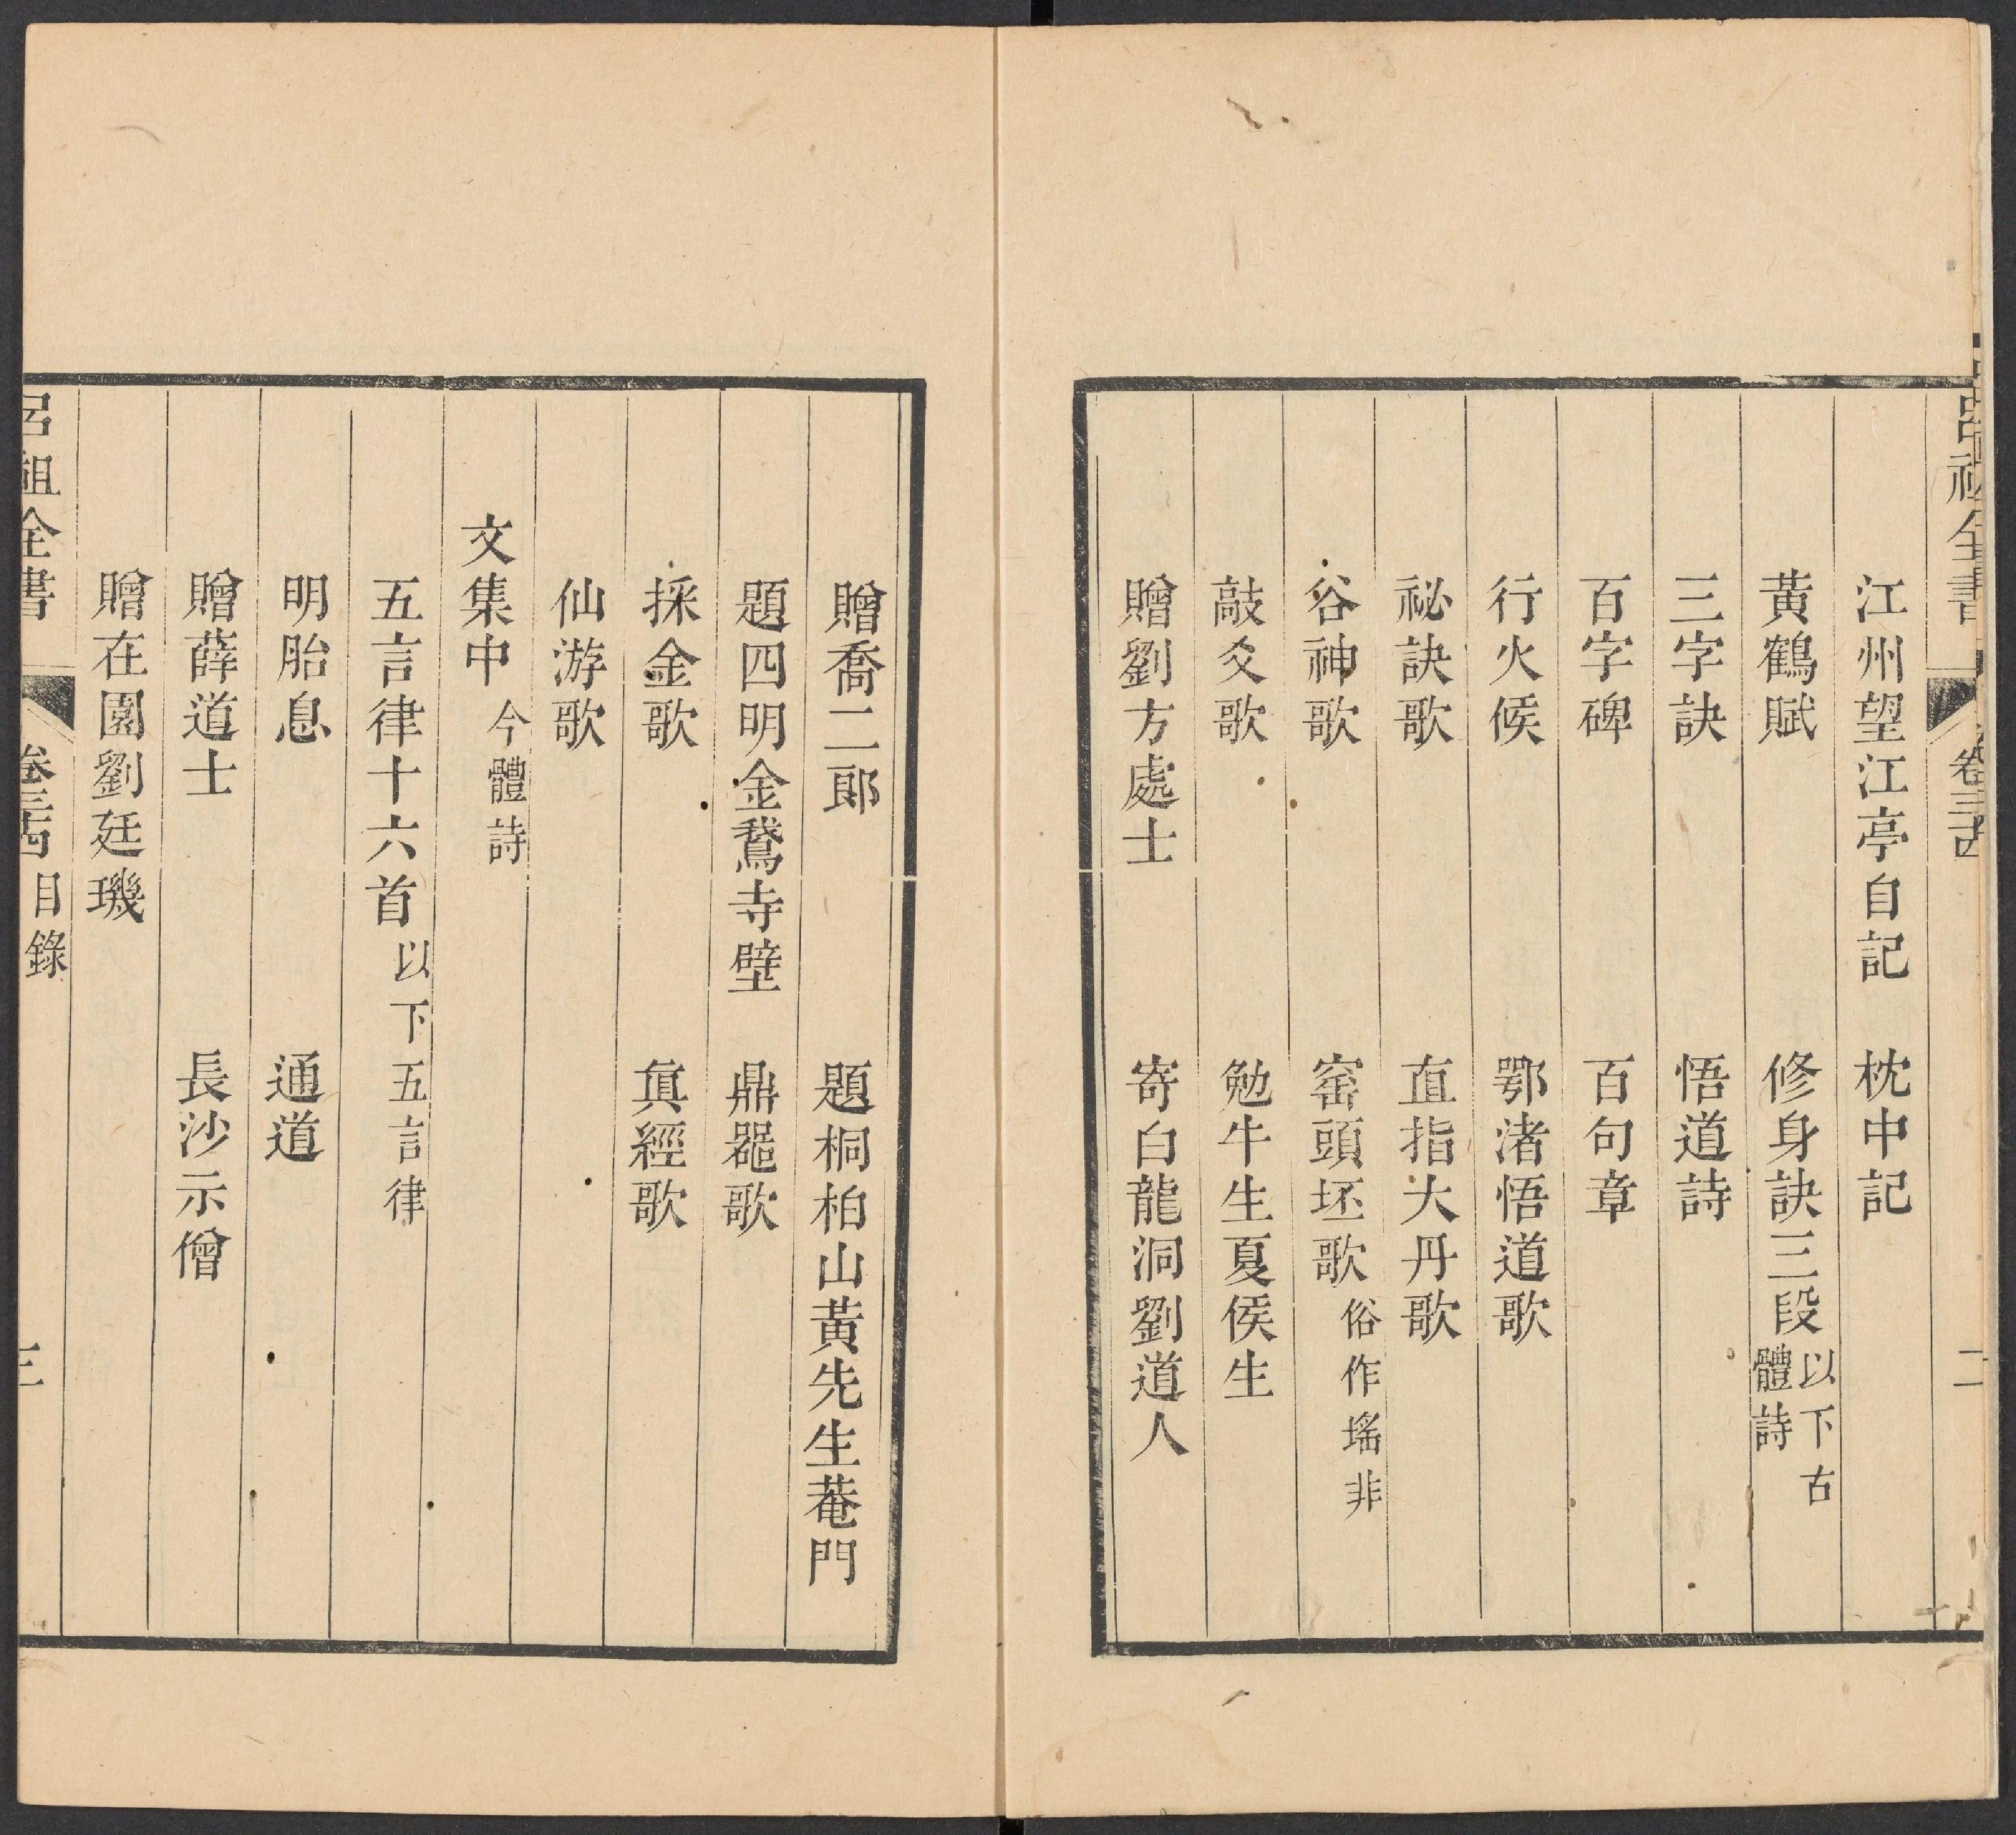 呂祖全書 卷三十四 二
江州望江亭自記 枕中記
黃鶴賦 修身訣三段 以下古體詩
三字訣 悟道詩
百字碑 百句章
行火候 鄂渚悟道歌
祕訣歌 直指大丹歌
谷神歌 窰頭坯歌 俗作瑤非
敲爻歌 勉牛生夏侯生
贈劉方處士 寄白龍洞劉道人
贈喬二郎 題桐柏山黃先生菴門
題四明金鵞寺壁 鼎器歌
採金歌 眞經歌
仙游歌
文集中 今體詩
五言律十六首 以下五言律
明胎息 通道
贈薛道士 長沙示僧
贈在園劉廷璣
呂祖全書 卷三十四 目錄 三